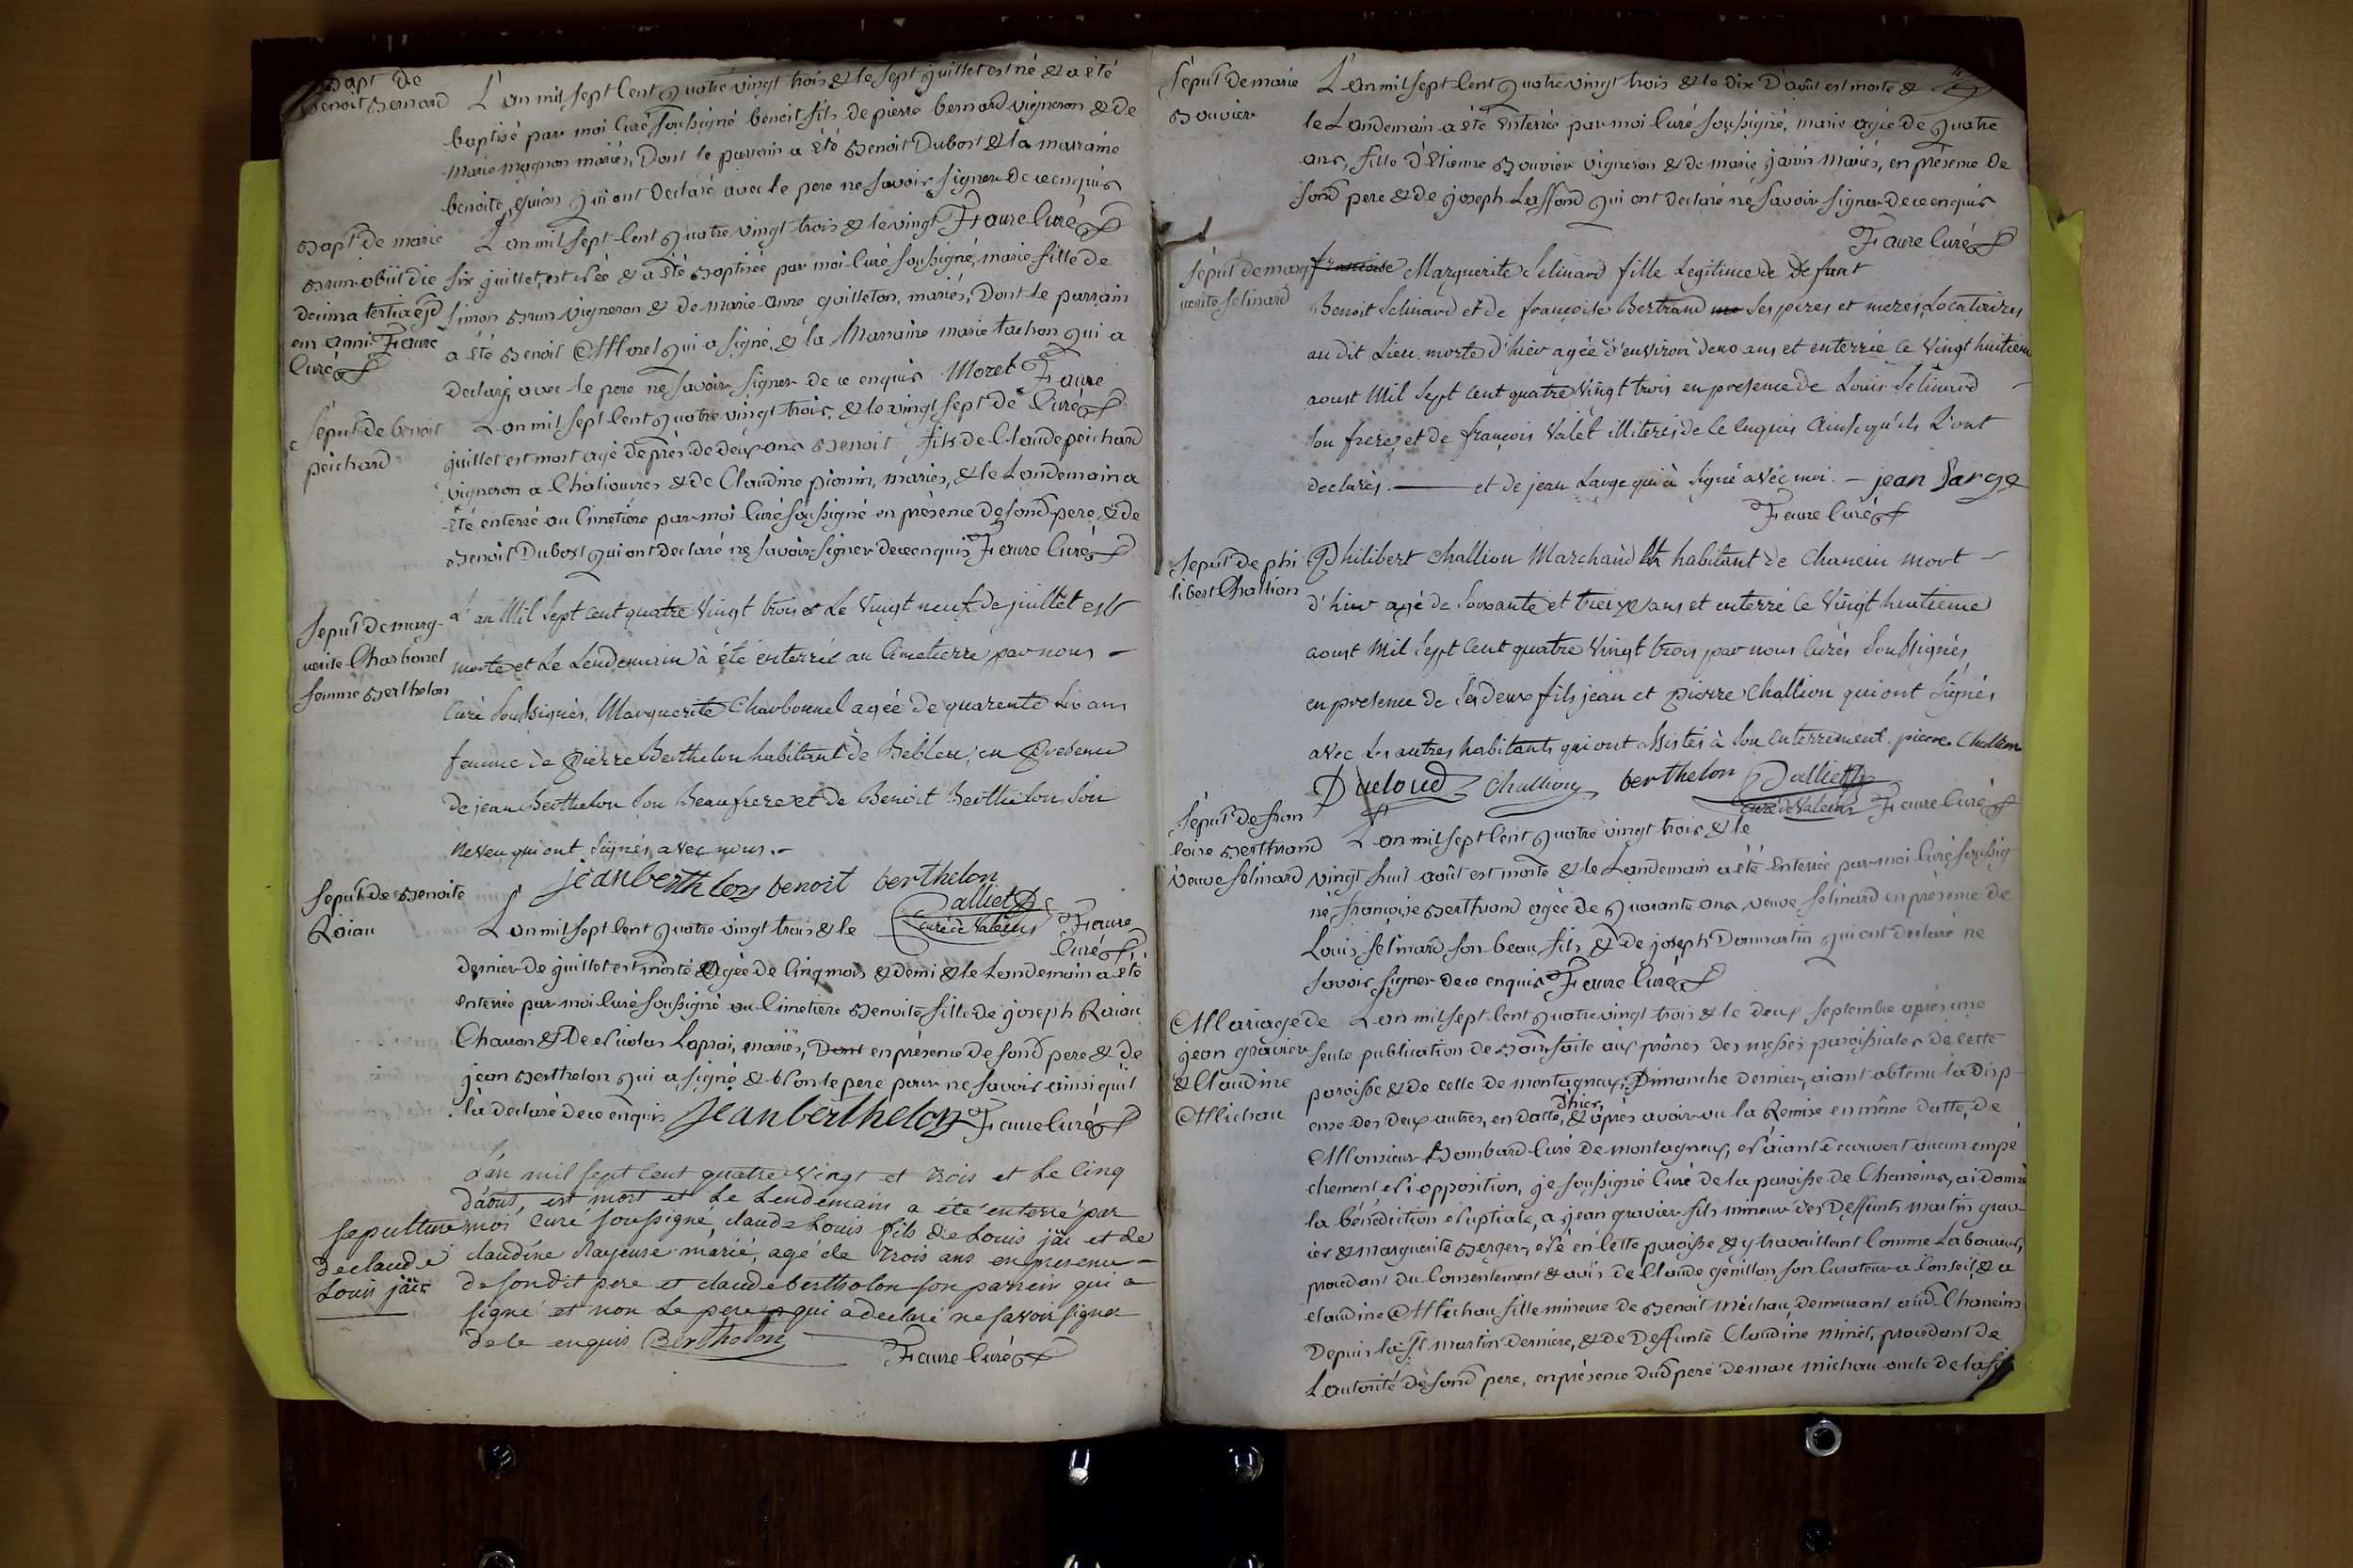 Bapt de
Benoit Bernard
L'an mil sept Cent quatre vingt trois & le sept juillet est né & a été
baptisé par moi Curé soussigné benoit fils de pierre bernard vigneron & de
Marie magnon mariés, Dont le parrain a été Benoit Dubost & la marraine
benoite guion qui ont declaré avec le pere ne savoir signer de ce enquis
Faure Curé
Bapt de marie
Brun obiit die
decima tertia ejusd
em anni. Faure
Curé
L'an mil sept Cent quatre vingt trois & le vingt
six juillet, est née & a été Baptisée par moi Curé soussigné, marie fille de
simon Brun vigneron & de marie anne guilleton, mariés, Dont le parrain
a été Benoit Morel qui a signé, & la Marraine marie tachon qui a
declaré avec le pere ne savoir signer de ce enquis Morel Faure
Curé
Sepult de benoit
peichard
L'an mil sept Cent quatre vingt trois, & le vingt sept de
juillet est mort agé de près de deux ans Benoit, fils de Claude peichard
vigneron a Chaliouvres & de Claudine pionin, mariés, & le Lendemain a
été enterré au Cimetière par moi Curé soussigné en présence de sond pere, & de
Benoit Dubost qui ont declaré ne savoir signer de ce enquis Faure Curé
Sepult de marg-
uerite Charbonel
femme Berthelon
L'an Mil Sept Cent quatre Vingt trois et Le Vingt neuf de juillet est
morte et Le Lendemain à été enterrée au Cimetierre par nous -
Curé Soussignés, Marguerite Charbonnel agée de quarente Six ans
femme de Pierre Berthelon habitant de Bebleu, en Presence
de jean Berthelon Son Beaufrere et de Benoit Berthelon Son
Neveu qui ont Signés avec nous. -
jean berthelon benoit berthelon
Palliet
Curé de Valeins Faure
Curé
Sepult de Benoite
Roiau
L'an mil sept Cent quatre vingt trois & le
dernier de juillet est morte agée de Cinq mois & demi & le Lendemain a été
enterrée par moi Curé soussigné au Cimetiere Benoite fille de joseph Roiau
Charron & De Nicolas Laprai, mariés, Dont en présence de sond pere & de
jean Berthelon qui a signé & Non le pere pour ne savoir ainsi qu'il
l'a declaré de ce enquis Jean berthelon Faure Curé
Sepulture
de claude
Louis jäi
L'an mil sept Cent quatre Vingt et trois et Le Cinq
d'aout, est mort et Le Lendemain a été enterré par
moi Curé soussigné, claude Louis fils de Louis jäi et de
claudine Rayeuse marié, agé de trois ans en presence -
de son dit pere et claude bertholon son parrein qui a
signé et non Le pere qui a declaré ne savoir signer
de le enquis Bertholon
Faure Curé
Sépult de marie
Bouvier
L'an mil sept Cent quatre vingt trois & le dix D'août est morte &
le Landemain a été enterrée par moi Curé soussigné, marie agée de quatre
ans, fille d'Etienne Bouvier vigneron & de marie janin mariés, en présence de
sond pere & de joseph Laffond qui ont declaré ne savoir signer de ce enquis
Faure Curé
Sépult de marg
uerite selinard
francoise Marguerite Selinard fille Legitime de defunt
Benoit Selinard et de francoise Bertrand Ses peres et meres, Locataires
au dit Lieu, morte d'hier agée d'environ deux ans et enterrée ce Vingt huitieme
aoust Mil Sept Cent quatre Vingt trois en presence de Louis Selinard -
Son frere, et de françois Valet illiterés de Ce enquis Ainsi qu'ils L'ont
declarés. et de jean Large qui à Signé avec moi. - jean Large
Faure Curé
Sepult de phi
libert Challion
Philibert Challion Marchand habitant de Chanein mort -
d'hier agé de Soixante et treize ans et enterré ce Vingt huitieme
aoust Mil Sept Cent quatre Vingt trois par nous Curés Soussignés
en presence de Ses deux fils jean et Pierre Challion qui ont Signés
avec Les autres habitants qui ont Assistés à Son enterrement. pierre Challion
Dueloud Challion berthelon Palliet
Curé de Valeins Faure Curé
Sépult de fran
coise Berthrand
veuve selinard
L'an mil sept Cent quatre vingt trois & le
vingt huit août est morte & le Landemain a été enterrée par moi Curé soussig-
né françoise Berthrand agée de quarante ans veuve selinard en présence de
Louis selinard son beau fils & de joseph Dommartin qui ont declaré ne
savoir signer de ce enquis Faure Curé
Mariage de
jean gravier
& Claudine
Michau
L'an mil sept Cent quatre vingt trois & le deux septembre après une
seule publication de Ban faite aux prônes des messes paroissiales de cette
paroisse & de celle de montagneux, Dimanche dernier, aiant obtenu la disp-
ense des deux autres, en datte d'hier, & après avoir vu la Remise en même datte, de
Monsieur Bombard Curé de montagneux, n'aiant découvert aucun empé
chement ni opposition, je soussigné Curé de la paroisse de Chaneins, ai donné
la bénédiction nuptiale, a jean gravier fils mineur des deffunts martin grav-
ier & marguerite Berger, né en Cette paroisse & y travaillant Comme Laboureur,
procedant du Consentement & avis de Claude génillon son Curateur a Conseil, & a
claudine Michau fille mineure de Benoit michau, demeurant aud Chaneins
Depuis la st martin derniere, & de Deffunte Claudine minet, procedant de
L'autorité de sond pere, en présence dud pere de marc michau oncle de la